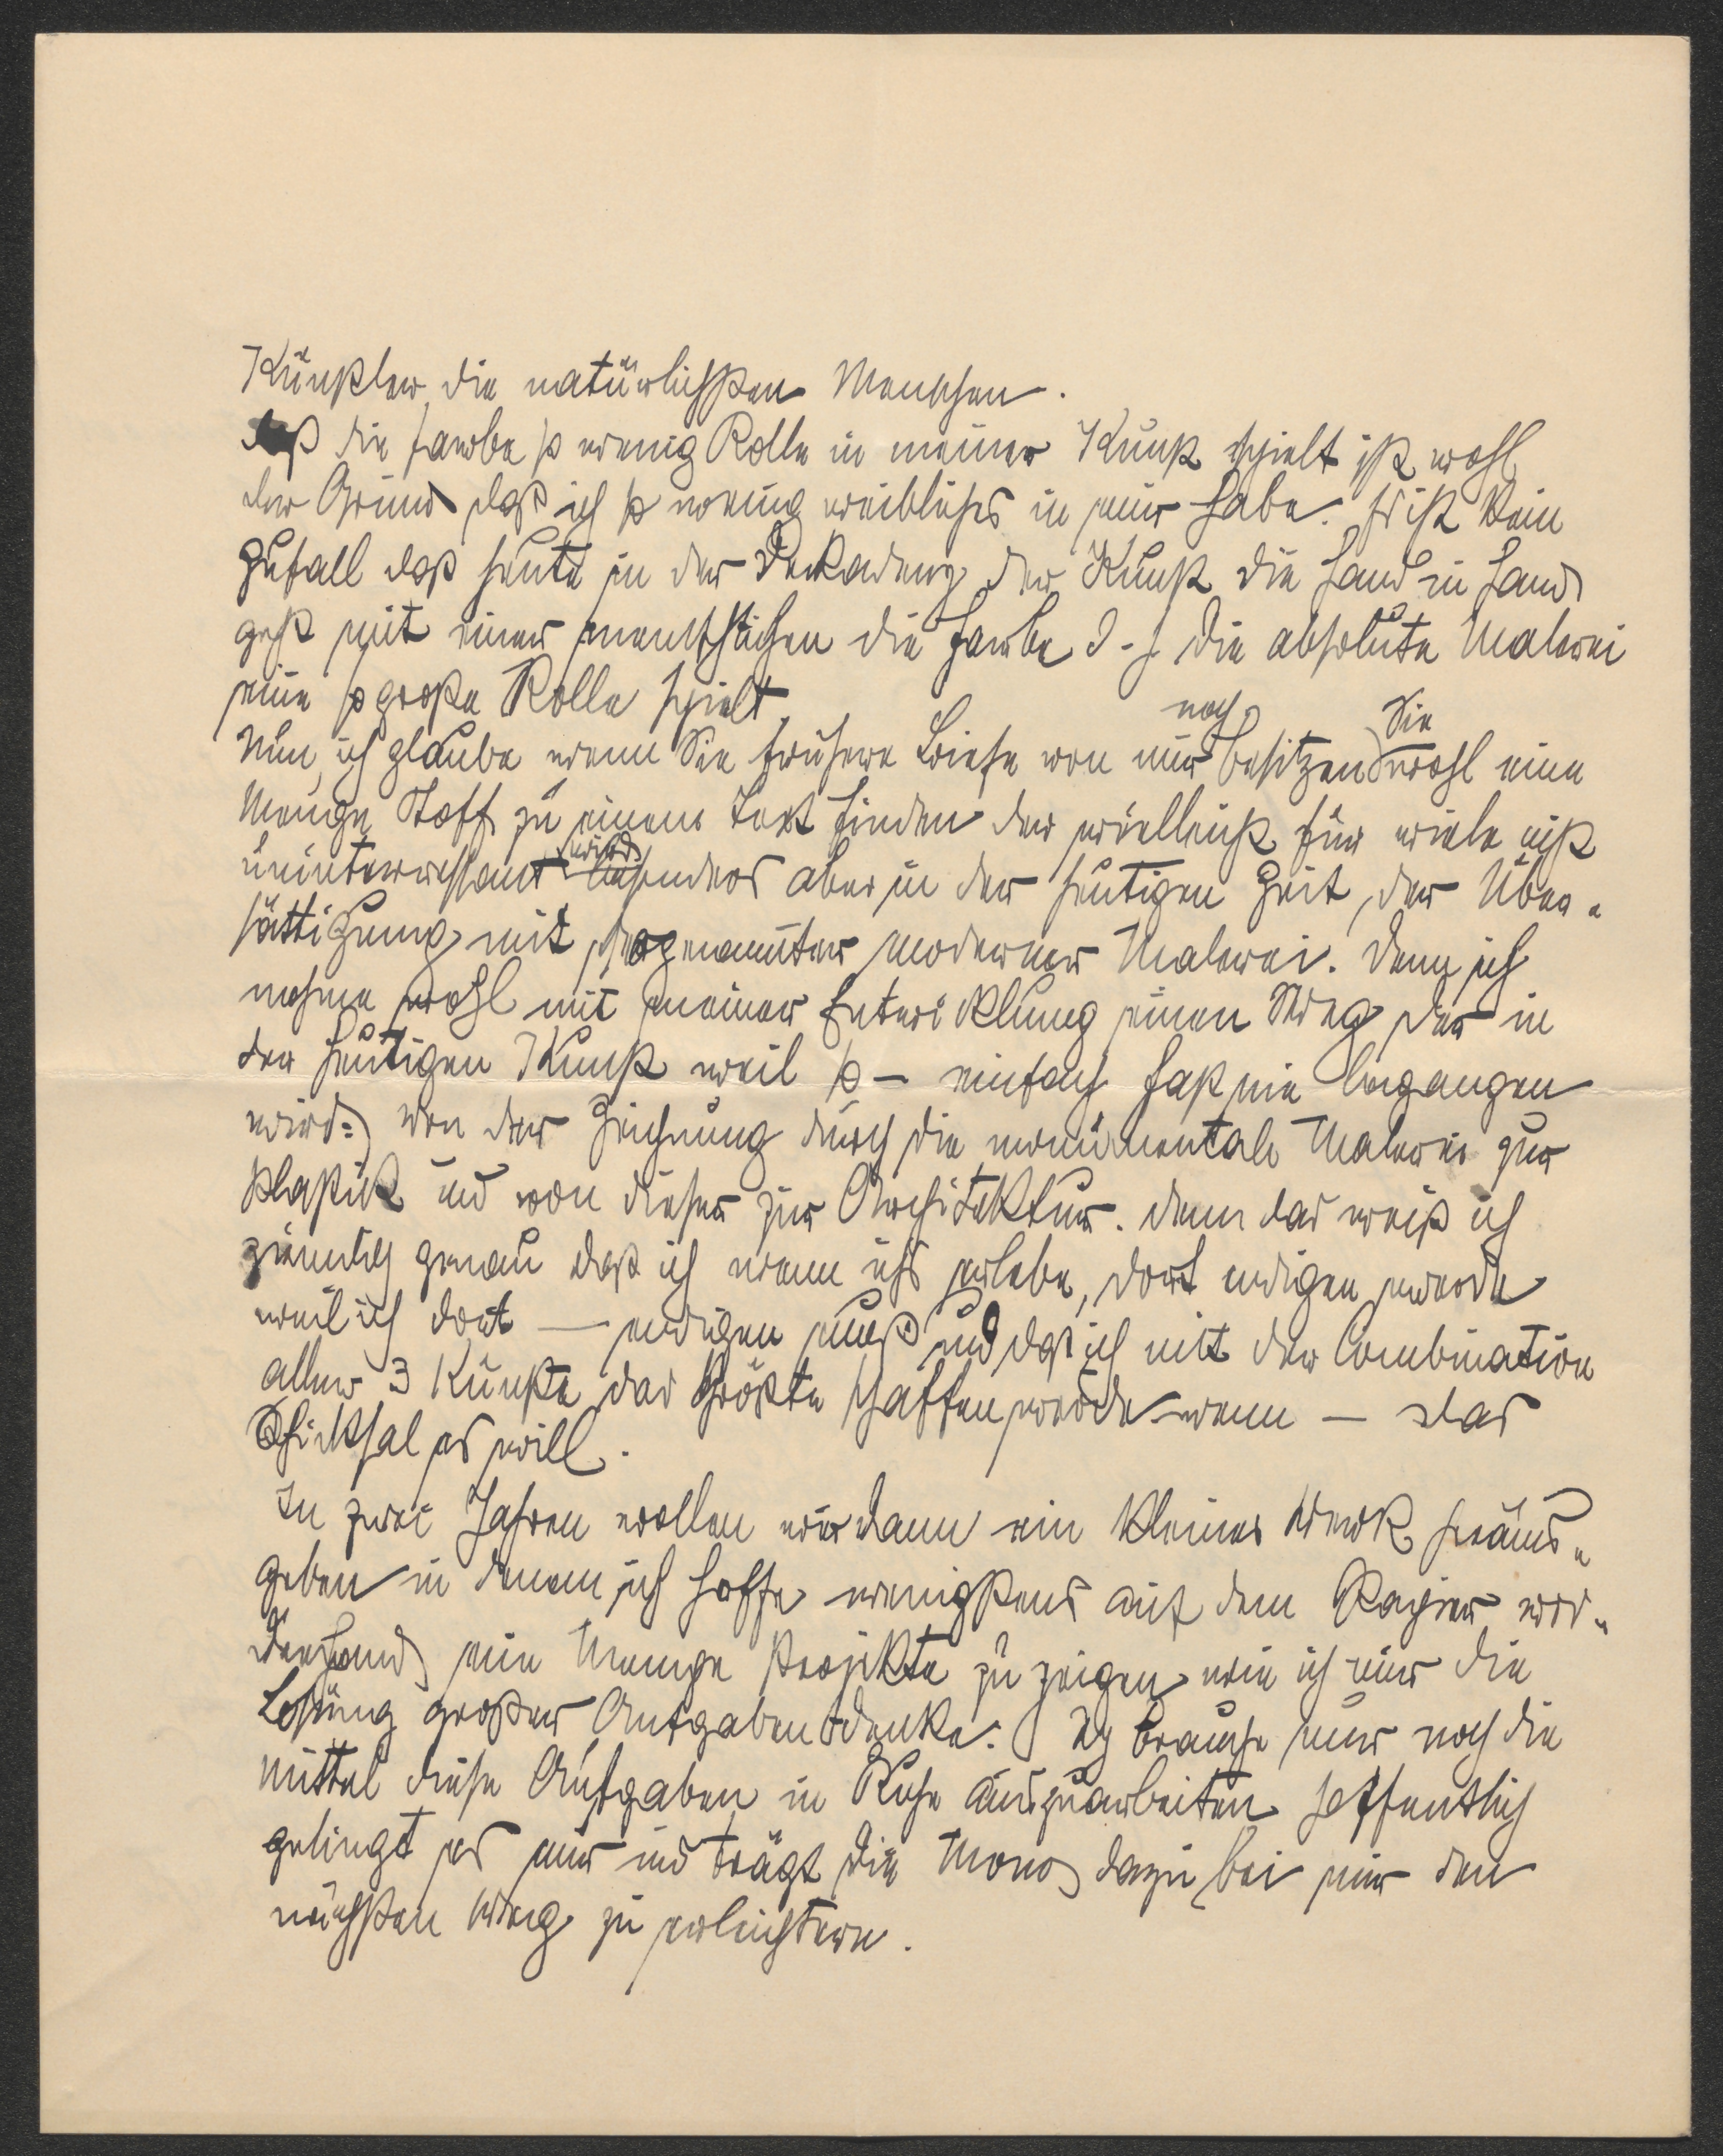 Künstler, die natürlichsten Menschen.
Daß die Farbe so wenig Rolle in meiner Kunst spielt ist wohl
der Grund daß ich so wenig weibliches in mir habe. Es ist kein
Zufall daß heute in der Dekadenz der Kunst die Hand in Hand
geht mit einer menschlichen die Farbe d. h. die absolute Malerei
eine so große Rolle spielt.
Nun, ich glaube wenn Sie frühere Briefe von mir noch besitzen Sie wohl eine
Menge Stoff zu einem Text finden der vielleicht für viele nicht
uninteressant wird besonders aber in der heutigen Zeit, der Über-
sättigung mit sogenannter moderner Malerei. Denn ich
nehme wohl mit meiner Entwicklung einen Weg der in
der heutigen Kunst weil so – einfach fast nie begangen
wird: von der Zeichnung durch die monumentale Malerei zur
Plastik und von dieser zur Architektur. Denn das weiß ich
ziemlich genau daß ich wenn ichs erlebe, dort endigen werde
weil ich dort — endigen muß und daß ich mit der Combination
aller 3 Künste das Größte schaffen werde wenn – das
Schicksal es will.
In zwei Jahren wollen wir dann ein kleines Werk heraus-
geben in denem ich hoffe wenigstens auf dem Papier vor-
derhand eine Menge Projekte zu zeigen wie ich mir die
Lösung großer Aufgaben denke. Ich brauche nur noch die
Mittel diese Aufgaben in Ruhe auszuarbeiten hoffentlich
gelingt es mir und trägt die Mono dazu bei mir den
nächsten Weg zu erleichtern.